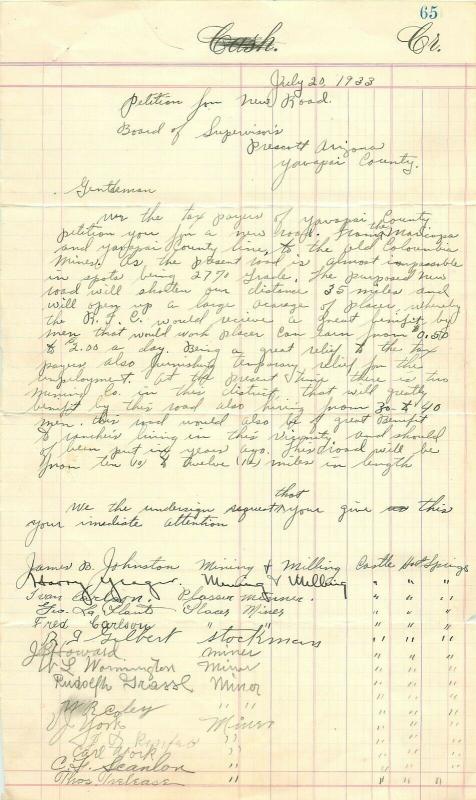 65
Cash. Cr.
July 20, 1933
Petition for New Road.
Board of Supervisors
Prescott Arizona
Yavapai County.
Gentleman
We the tax payers of Yavapai County
petition you for a new road. From the Maricopa
and Yavapai County line, to the old Coloumbia
Mines. As the present road is almost impassable
in spots being 27% Grade. The purposed New
road will shorten our distance 35 miles and
will open up a large acarage of placer, whereby
the R.F.C. would recieve a great benifit, by
men that would work placer can earn from $0.50
to $2.00 a day. Being a great relief to the tax
payers also furnishing temporary relief for the
unployment. At the present time there is two
Mining Co. in this district that will greatly
benifit by this road also hiring from 30 to 40
men. this road would also be a great Benefit
to ranches living in this viginity, and should
of been put in years ago. This road will be
from ten (10) to twelve (12) miles in length
We the undersign request that your give this
your imediate attention
James B. Johnston Mining & Milling Castle Hot Springs
Harry Yeager. Mining & Milling " " "
Ivan Carlson. Plasser Miner. " " "
Geo. La Plant Placer Miner " " "
Fred Carlson " " " " "
Gilbert Stockman " " "
J. Howard miner " " "
W. L. Wormington Minor " " "
Rudolph Grassl Minor " " "
W R Coley " " " " "
York Miner " " "
" " " "
Earl York " " " "
C. F. Scanlon " " " "
Thos. Trelease " " " "